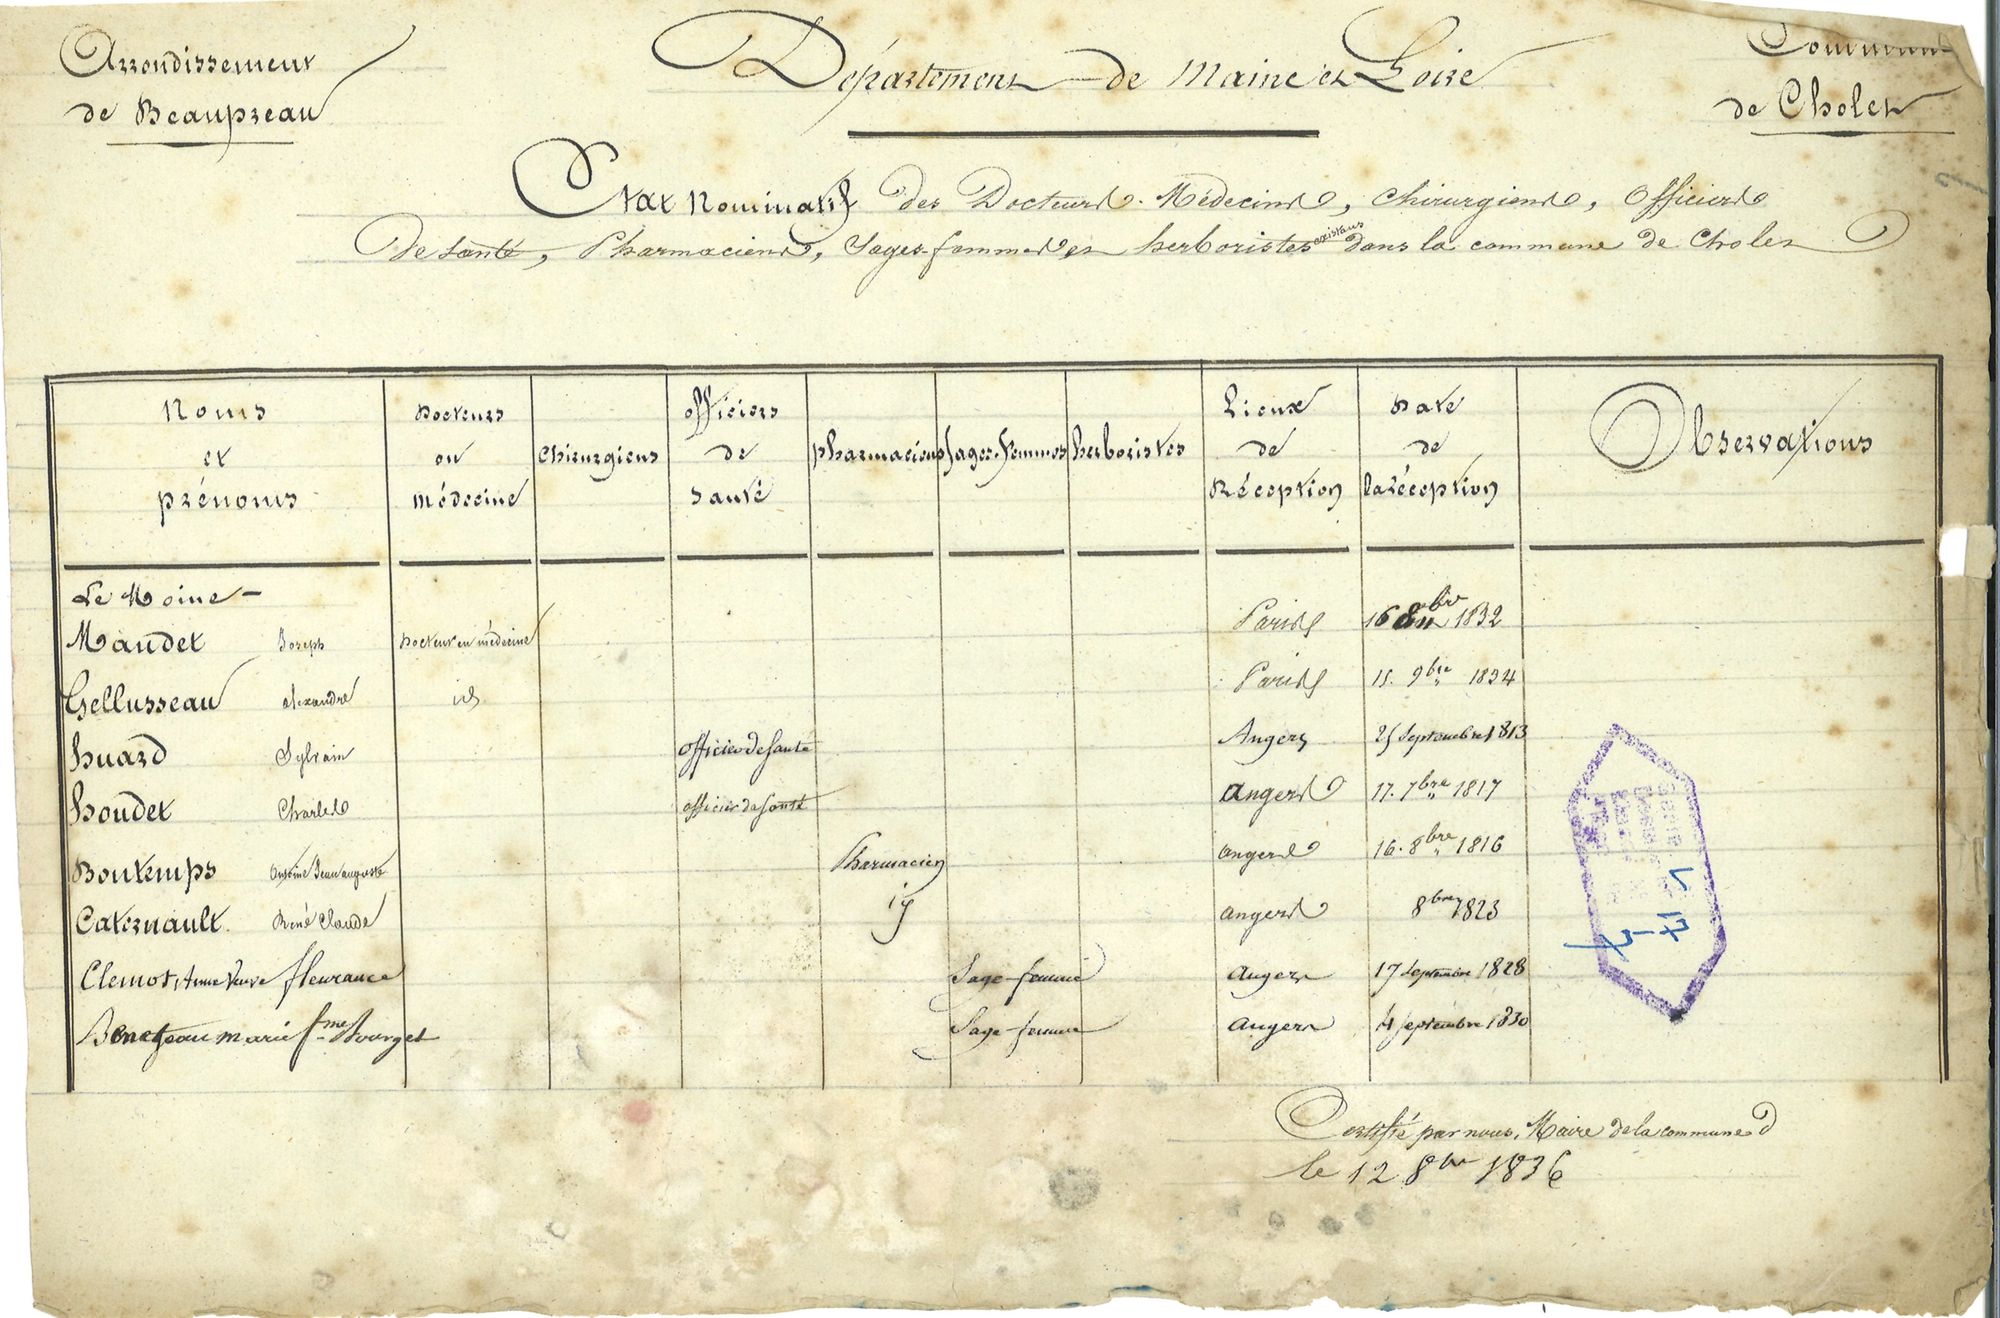 Arrondissement
de Beaupreau
Département de Maine et Loire
Commune
de Cholet
Etat Nominatif des Docteurs. Médecins, Chirurgiens, Officiers
De Santé, Pharmaciens, Sages femmes et herboristes existans dans la commune de Cholet
Noms et prénoms
Docteurs en Médecine
Chirurgiens
Officiers de Santé
Pharmaciens
Sages-femmes
herboristes
Lieux de Réception
Date de la réception
Observations
Le Moine -
Maudet Joseph Docteur en médecine Paris 16 8bre 1832
Gellusseau Alexandre id Paris 15. 9bre 1834
huard Sylvain officier de Santé Angers 25 Septembre 1813
houdet Charles officier de Santé angers 17. 7bre 1817
Bontemps Antoine Jean auguste Pharmacien angers 16. 8bre 1816
Caternault René Claude id angers 8bre 1823
Clemot, Anne Veuve fleurance Sage-femme angers 17 Septembre 1828
Beneteau marie fme Bourget Sage-femme angers 4 Septembre 1830
Certifié par nous, Maire de la commune
le 12 8bre 1836